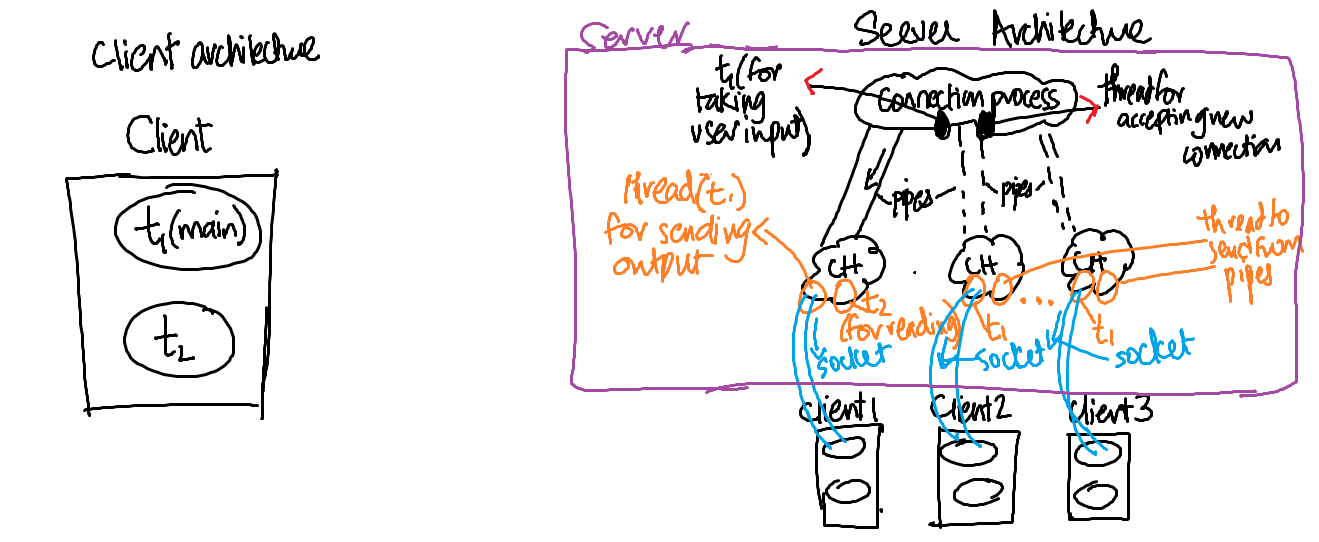 Client architecture
Client
t1(main)
t2
Server
Server Architecture
t1(for
taking
user input)
Connection process
thread for
accepting new
connection
pipes
pipes
thread(t1)
for sending
output
CH
CH
CH
thread to
send from
pipes
t2
(for reading)
t1
...
t1
socket
socket
socket
Client1
Client2
Client3